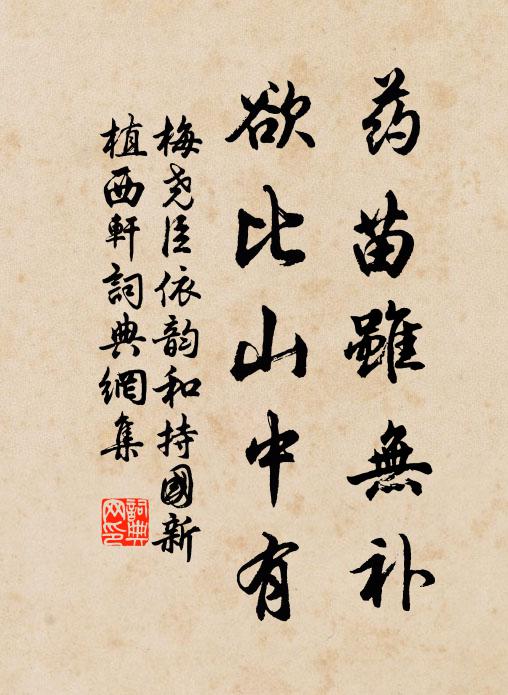 药苗雖無补
欲比山中有
梅尧臣依韵和持國新
植西軒詞典網集
詞典
网印